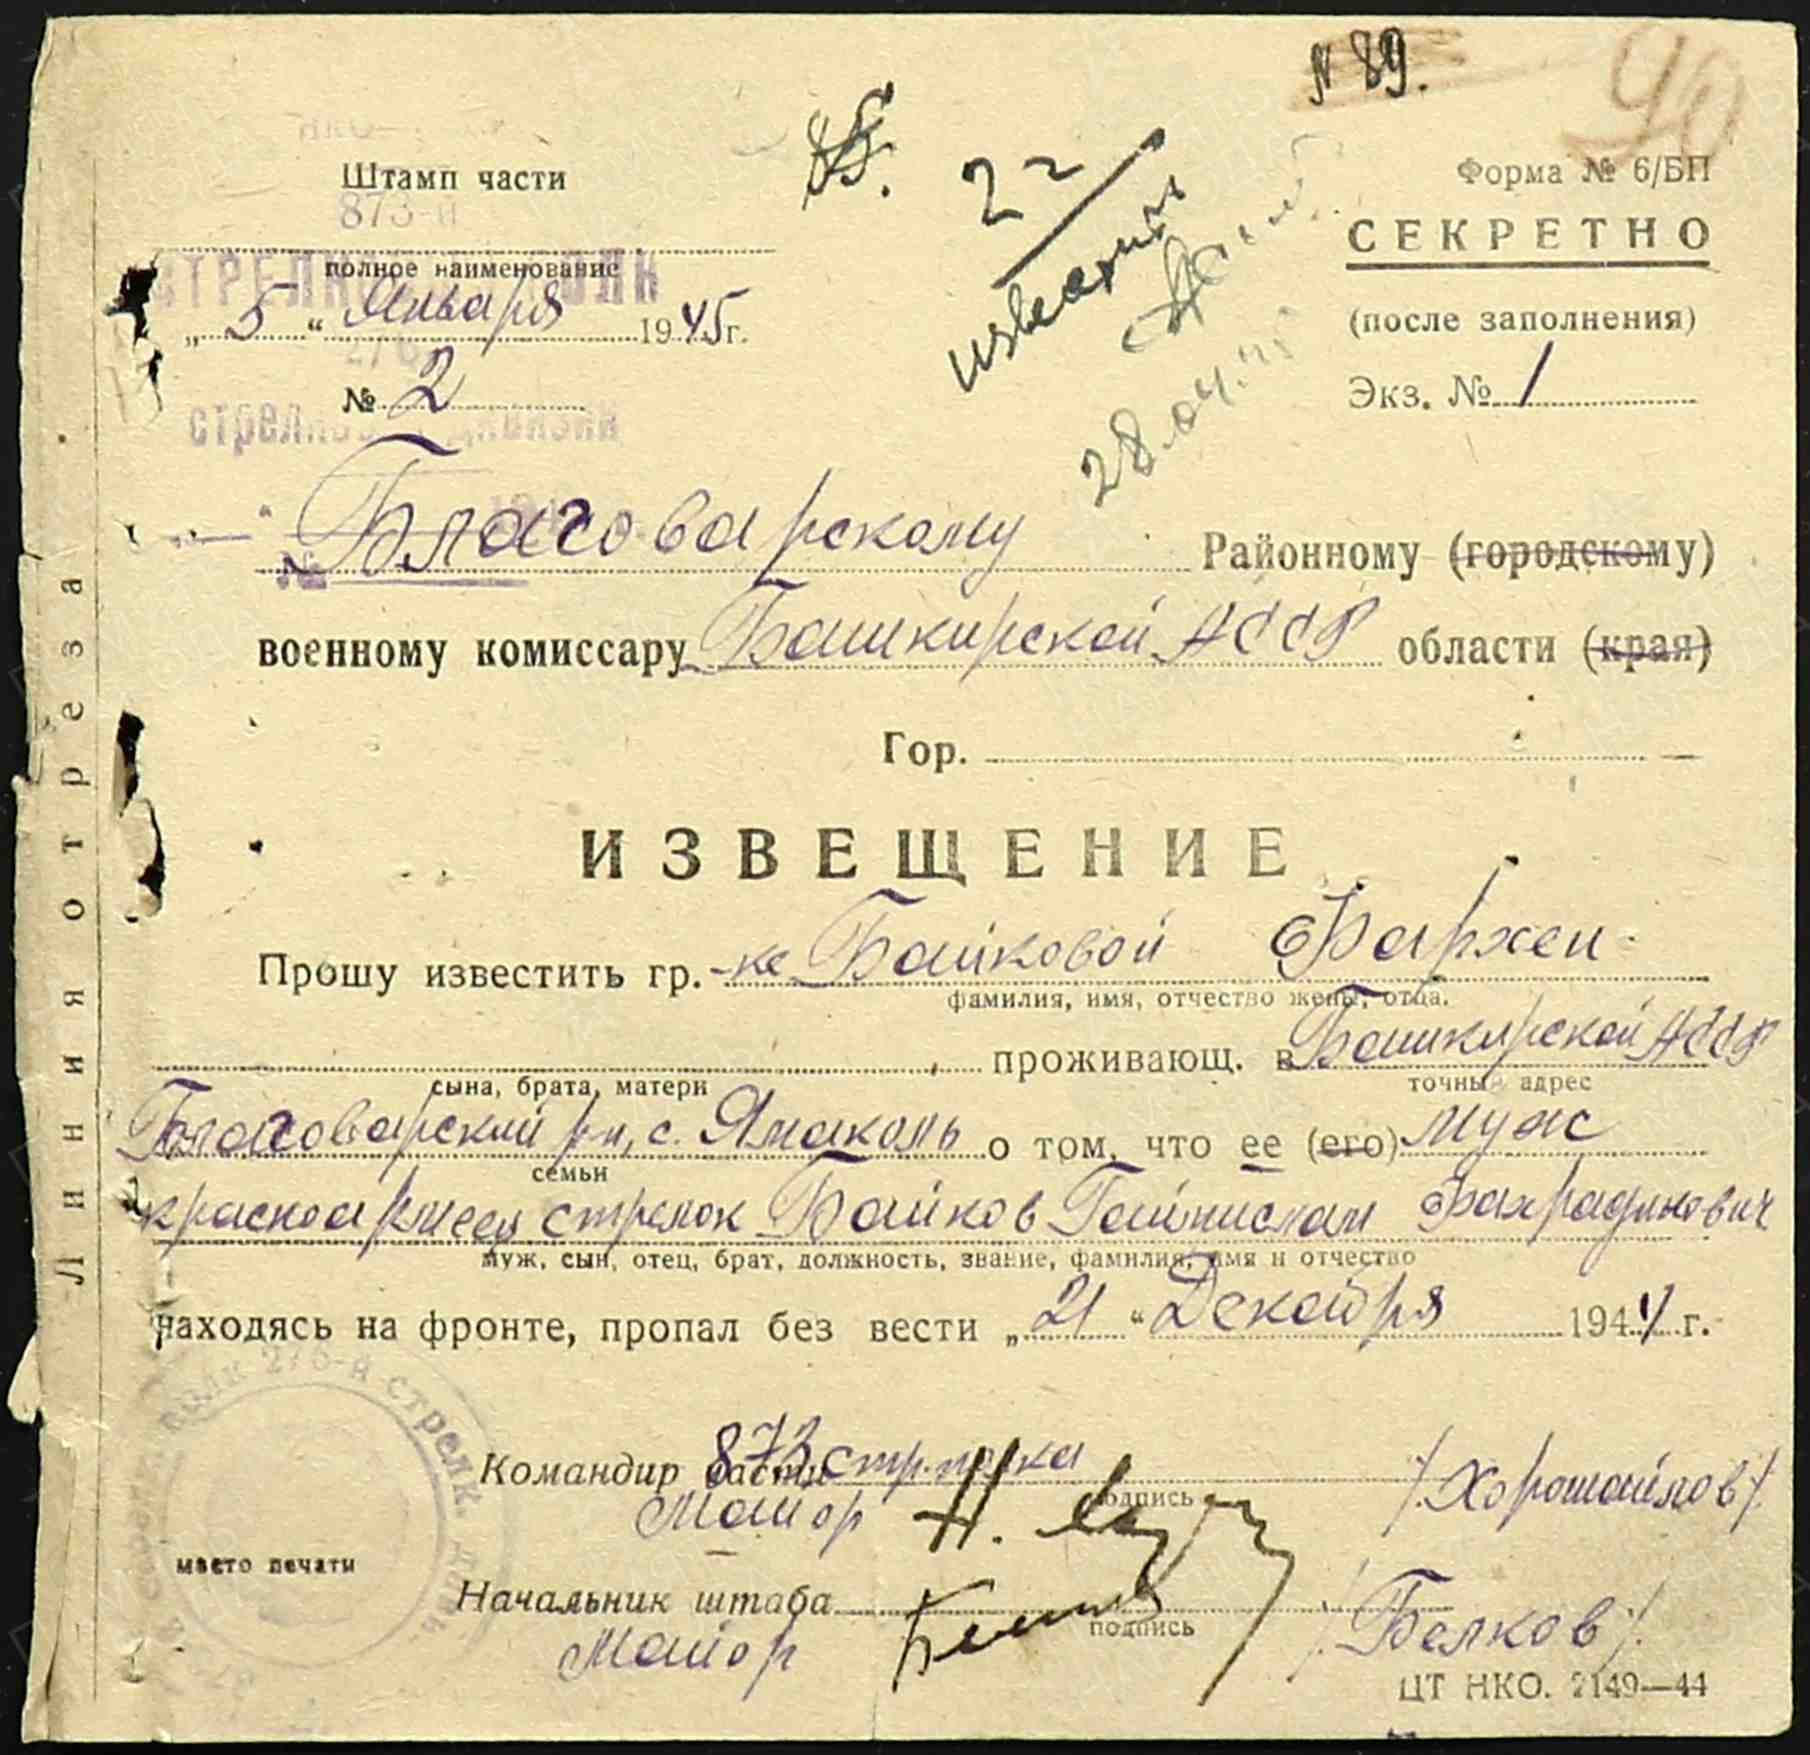 № 89.
90
Штамп части
Форма № 6/БП
873-й
СЕКРЕТНО
полное наименование
СТРЕЛКОВЫЙ ПОЛК
(после заполнения)
„5“ Января 1945г.
276
№ 2
Экз. № 1
стрелковой дивизии
22
известить
28.04.45
Благоварскому Районному (городскому)
№
военному комиссару Башкирской АССР области (края)
Гор.
ИЗВЕЩЕНИЕ
Прошу известить гр.-ке Байковой Фархен
фамилия, имя, отчество жены, отца.
проживающ. в Башкирской АССР
сына, брата, матери
точный адрес
Благоварский р-н, с. Ямаколь о том, что ее (его) муж
семьи
красноармеец стрелок Байков Гайнислам Фахрадинович
муж, сын, отец, брат, должность, звание, фамилия, имя и отчество
находясь на фронте, пропал без вести „21“ Декабря 1944 г.
полк 276-й стрелк. див.
Командир части 873 стр. полка
подпись
Майор
/Хорошайлов/
место печати
Начальник штаба
подпись
Майор
/Белков/
ЦТ НКО. 2149—44
Линия отреза